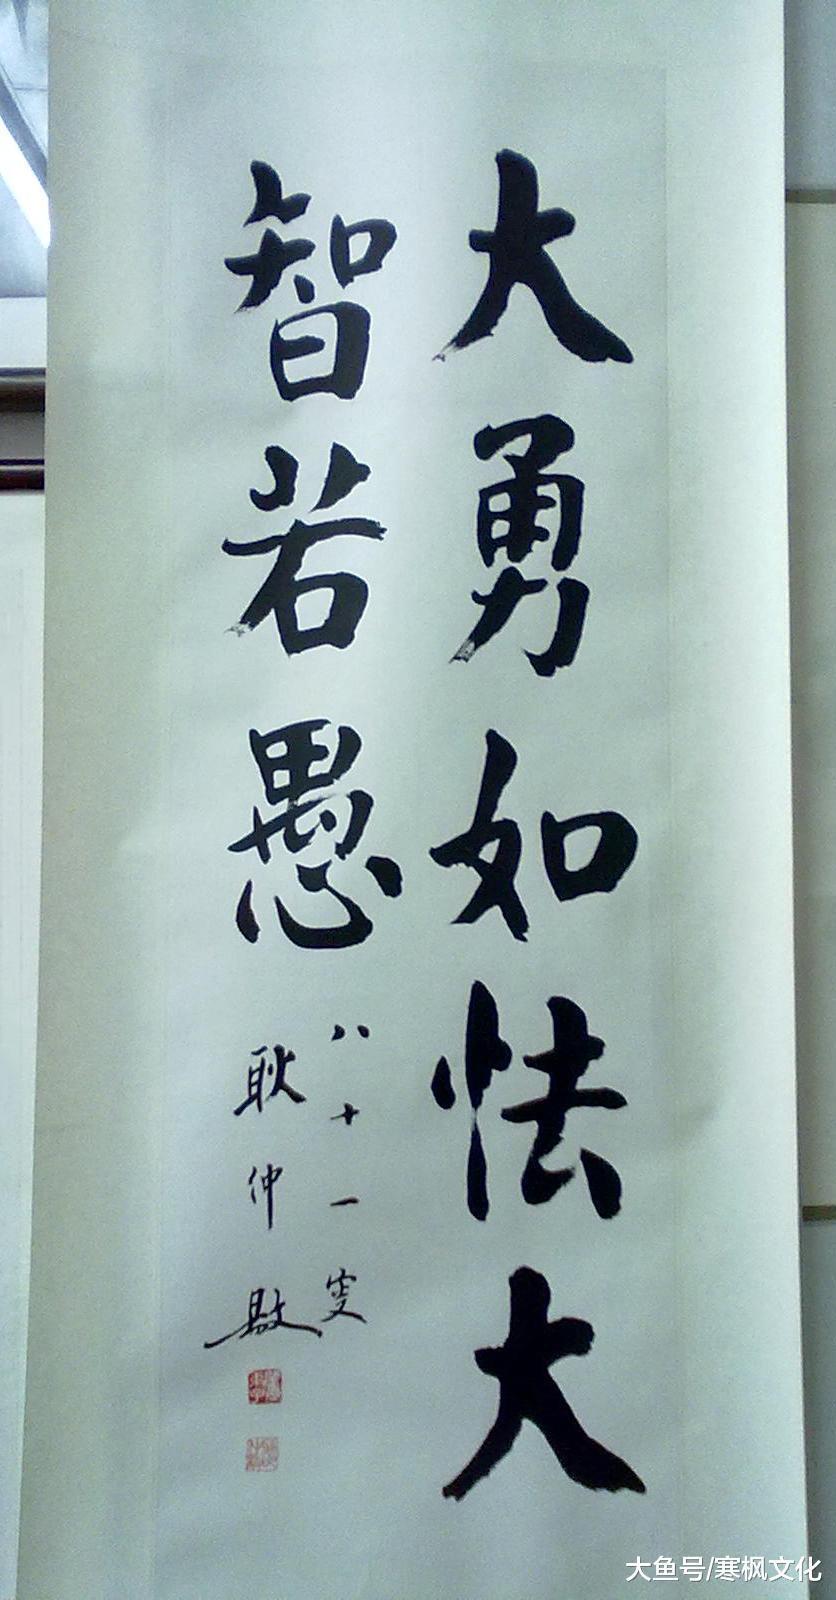 大勇如怯大
智若愚
八十一叟
耿仲敭
大鱼号/寒枫文化